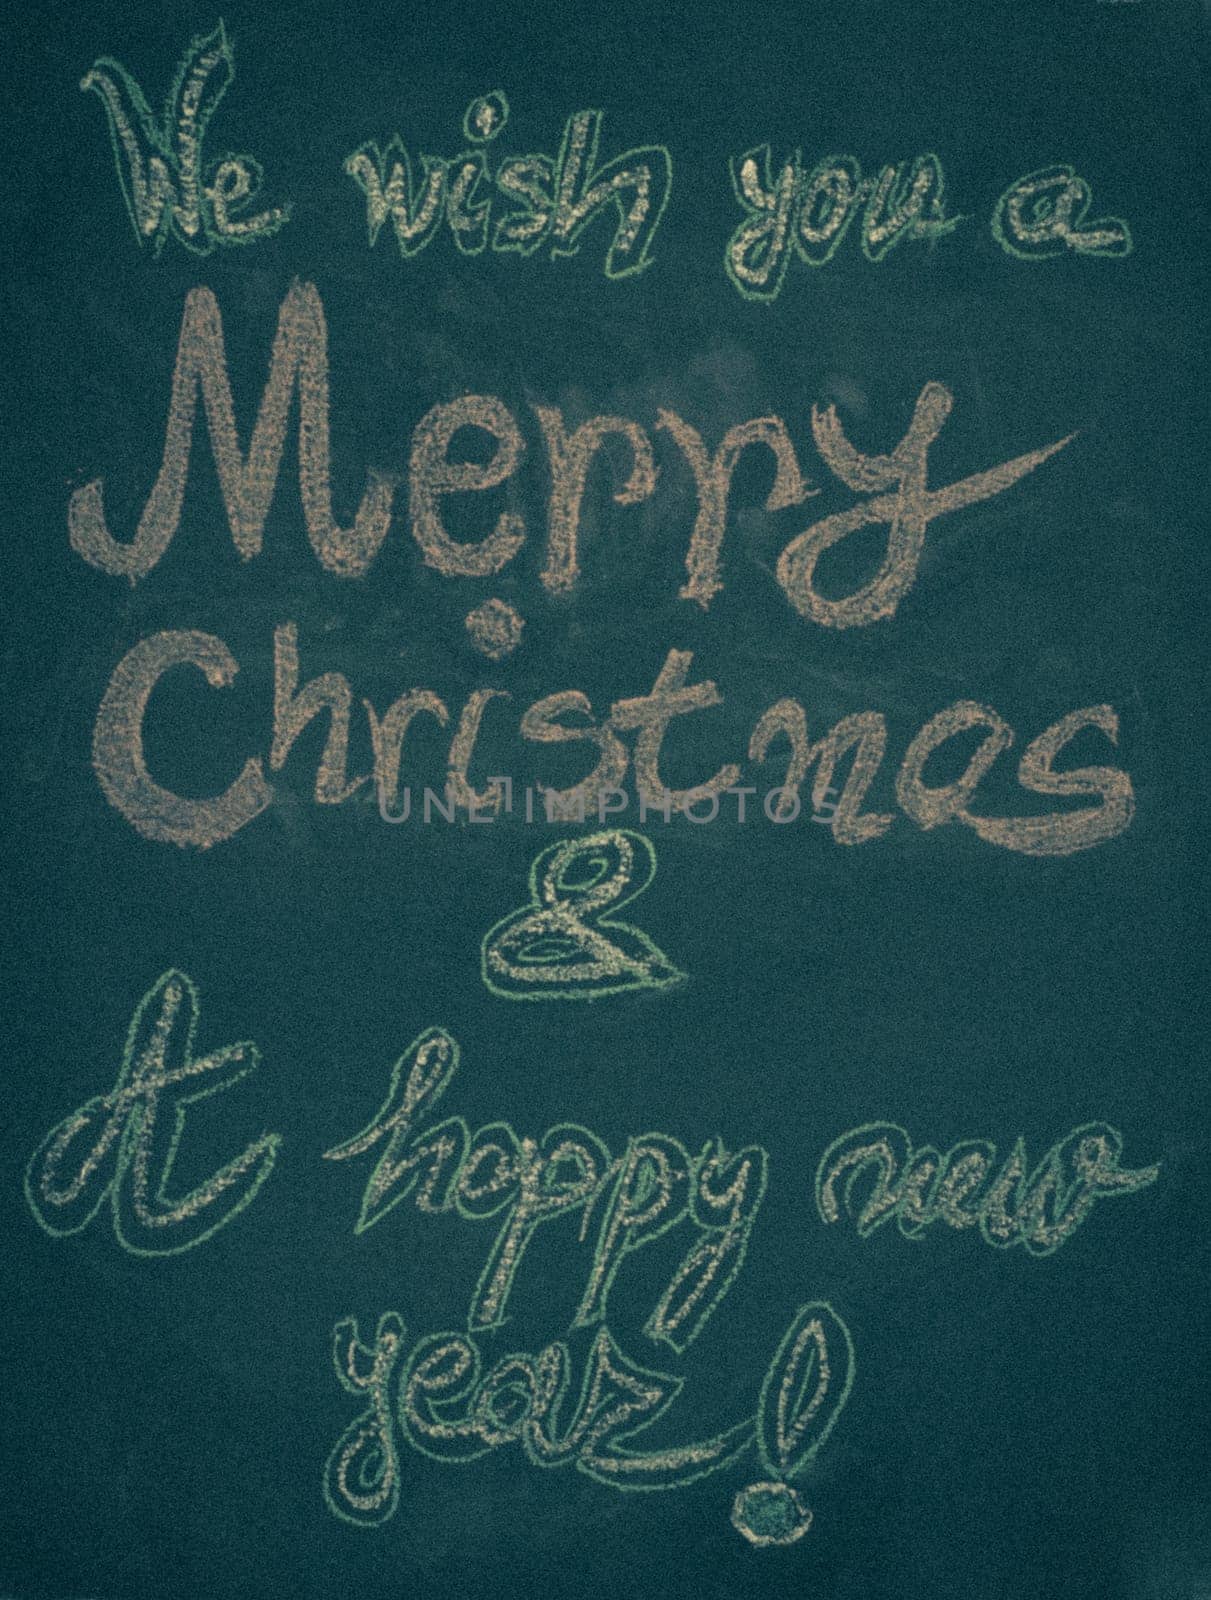 We wish you a
Merry
Christmas
UNLIMPHOTOS
&
A happy new
year!